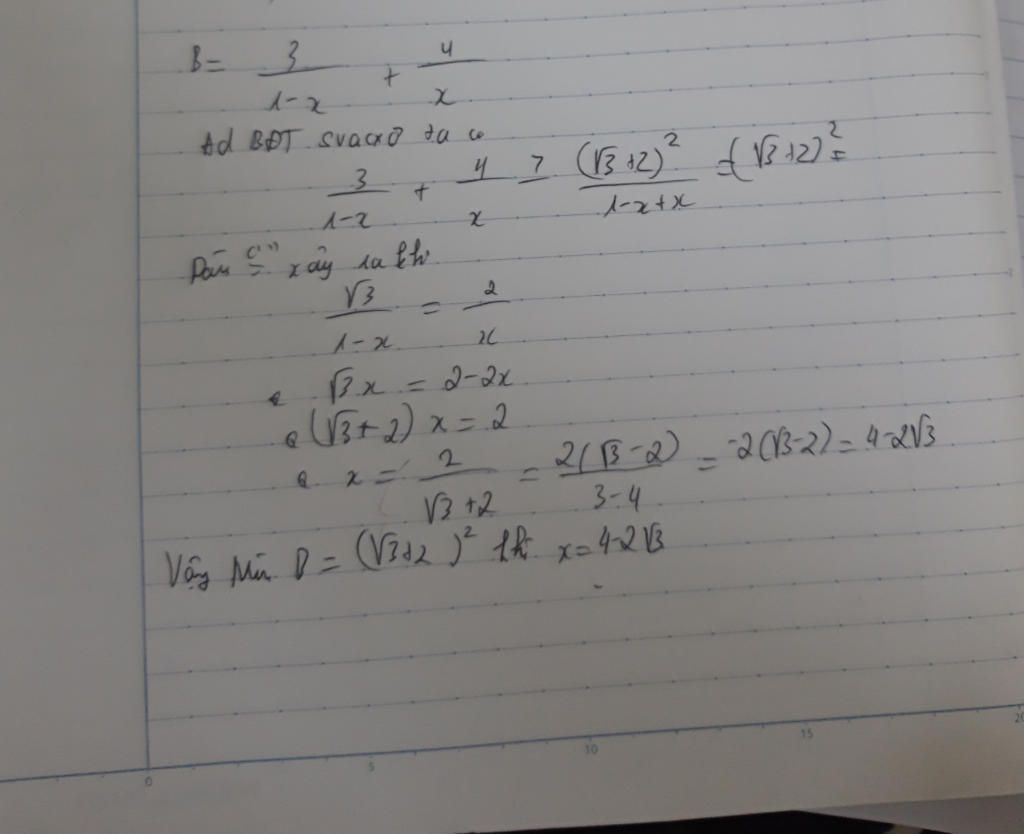 B = 3/(1-x) + 4/x
Ad BĐT svacxơ ta có
3/(1-x) + 4/x ≥ (√3+2)²/(1-x+x) = (√3+2)² =
Dấu "=" xảy ra khi
√3/(1-x) = 2/x
√3x = 2-2x
(√3+2)x = 2
x = 2/(√3+2) = 2(√3-2)/(3-4) = -2(√3-2) = 4-2√3
Vậy Min B = (√3+2)² khi x = 4-2√3
0 5 10 15 20